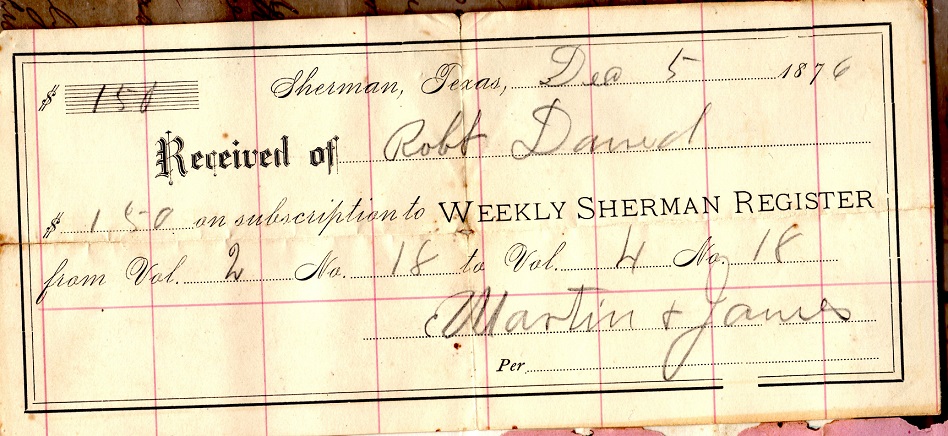 $ 150 Sherman, Texas, Dec 5 1876
Received of Robt
$ 150 on subscription to WEEKLY SHERMAN REGISTER
from Vol. 2 No. 18 to Vol. 4 No. 18
Martin & James
Per